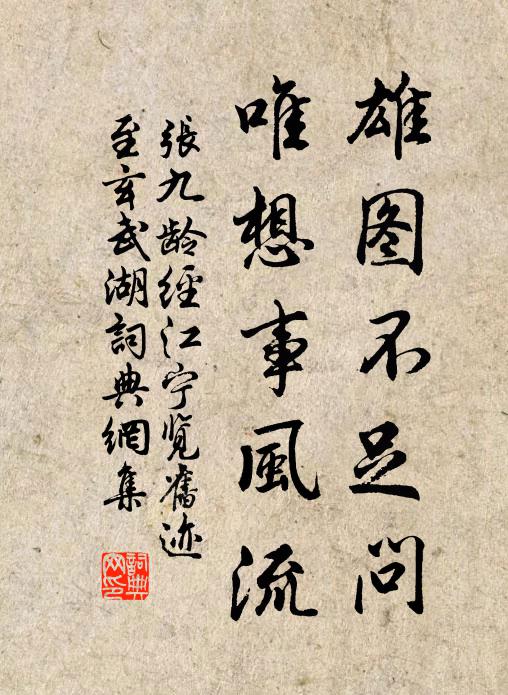 雄图不足问
唯想事風流
張九龄經江宁览舊迹
至玄武湖詞典網集
詞典
网印